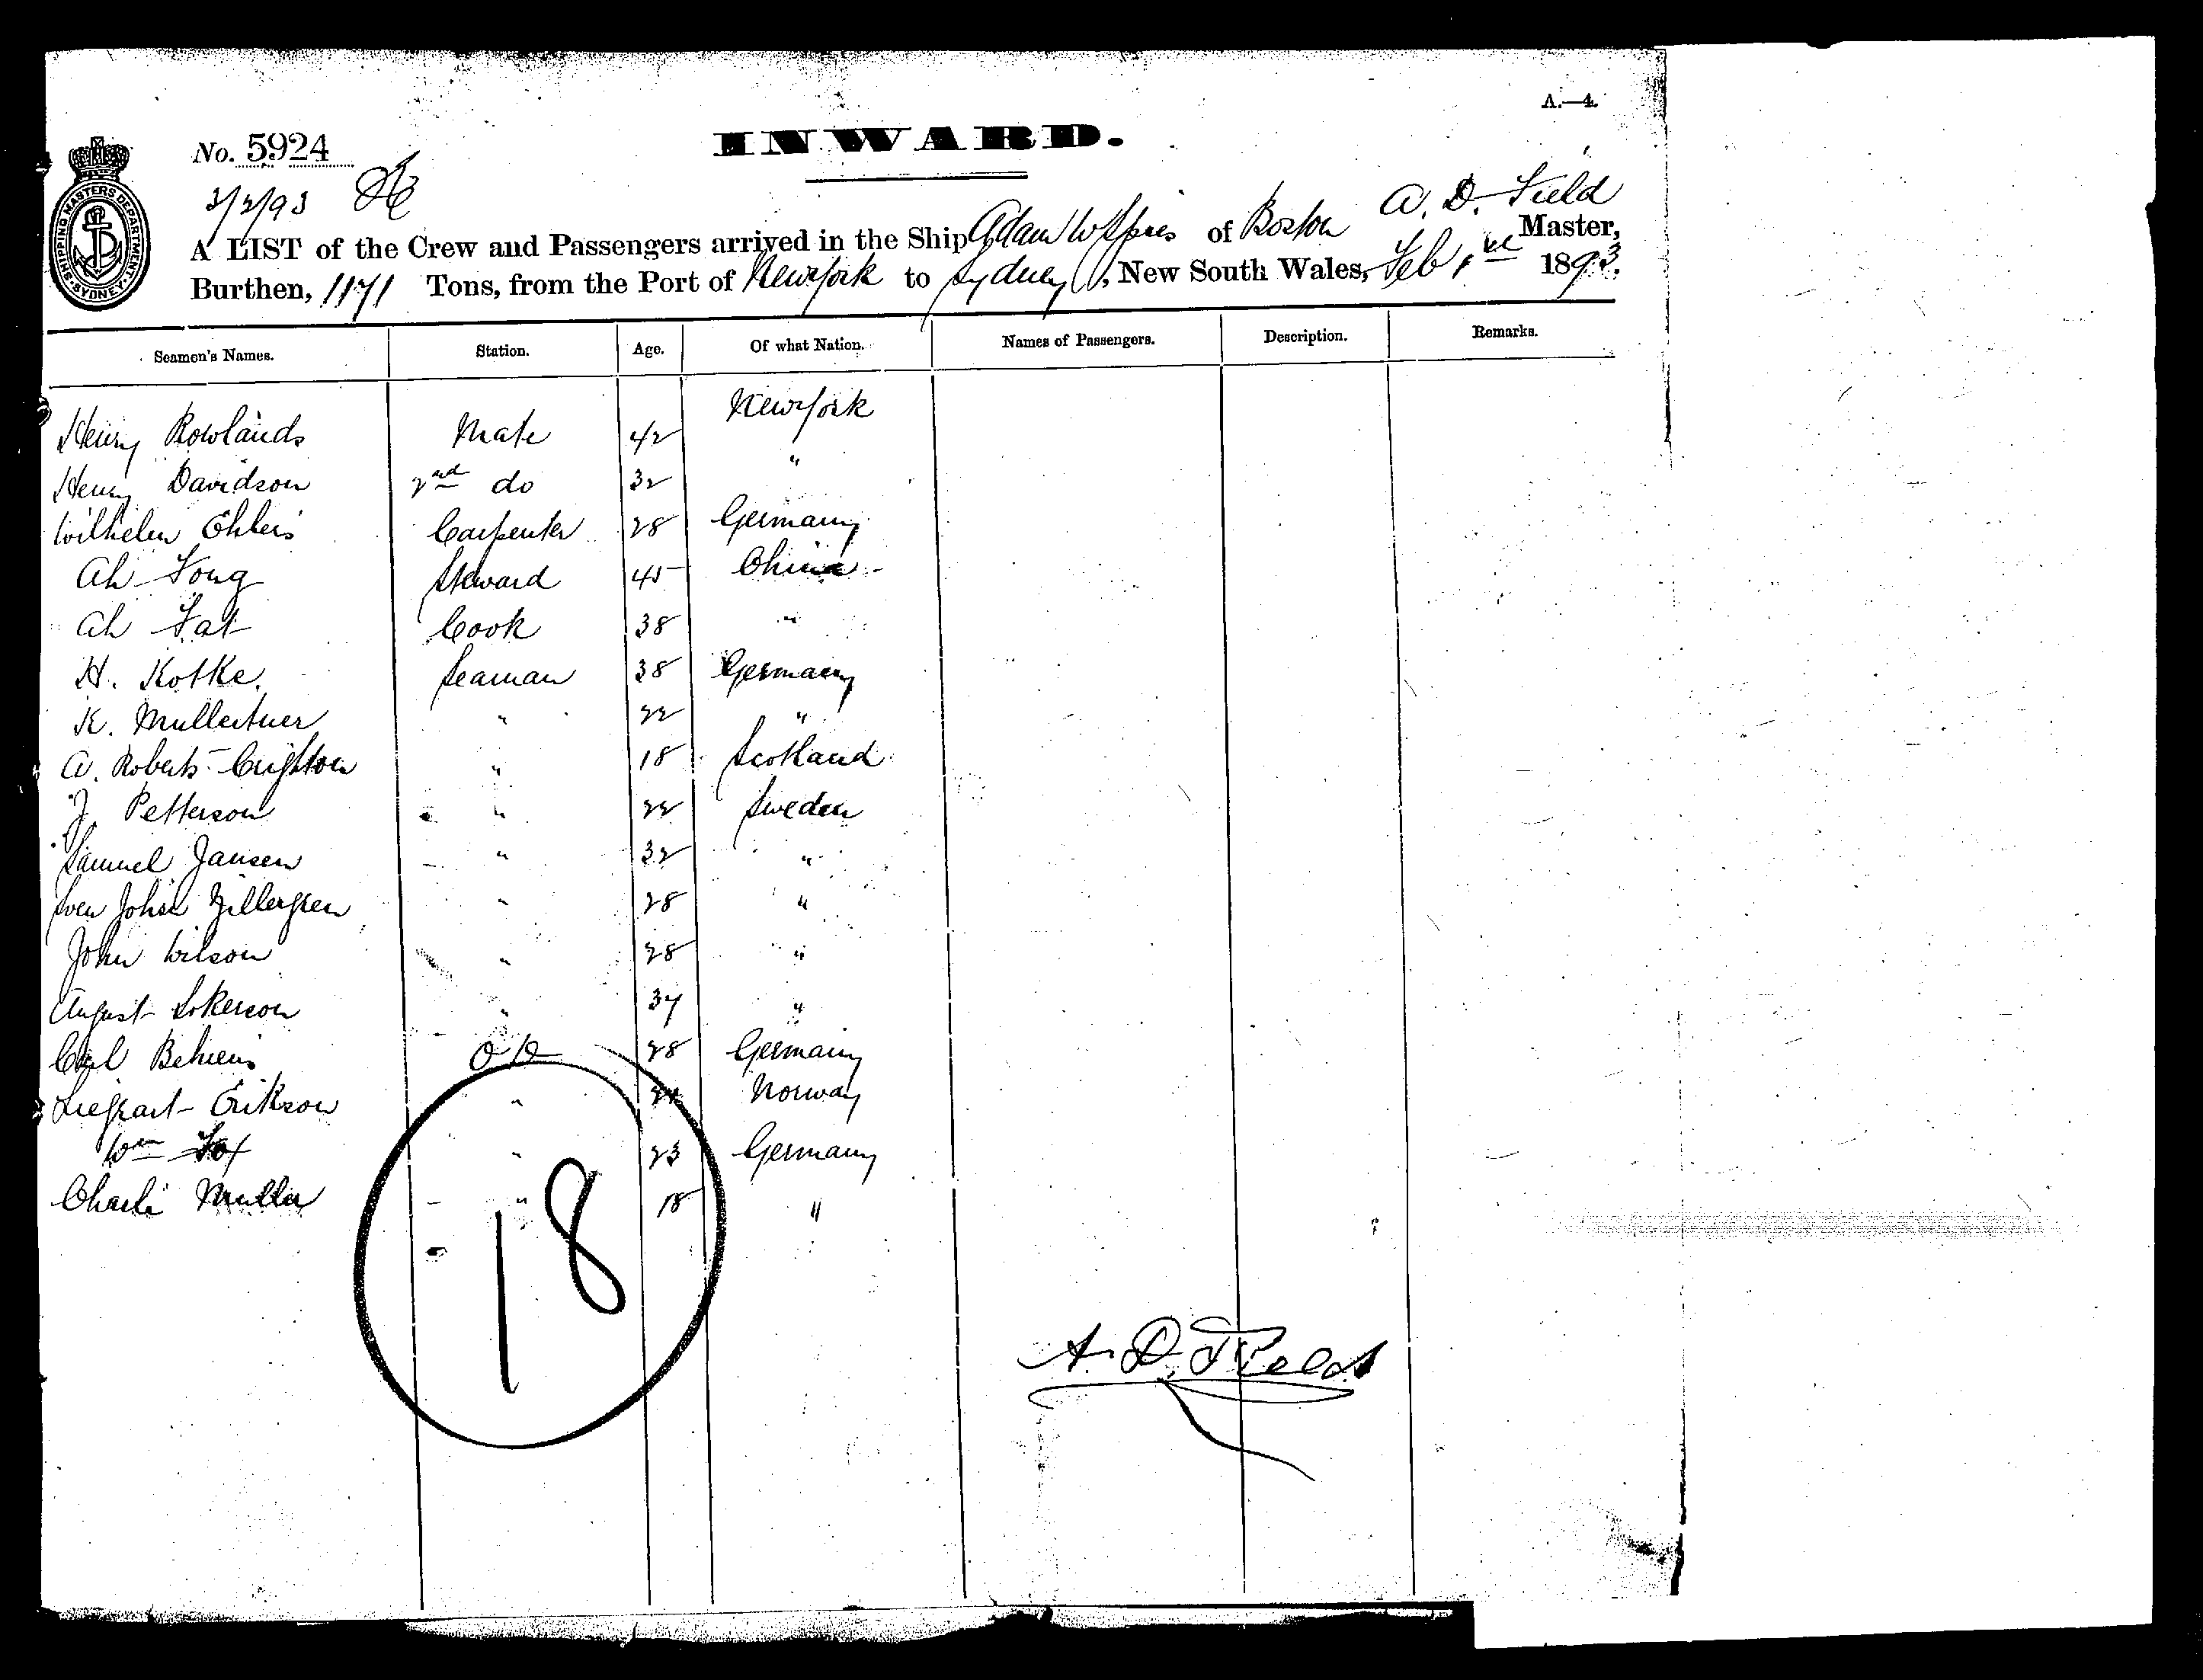 A.—4.
INWARD.
No. 5924
3/2/93
SHIPPING MASTERS DEPARTMENT SYDNEY
A. D. Field
A LIST of the Crew and Passengers arrived in the Ship Adam W Spies of Boston Master,
Burthen, 1171 Tons, from the Port of New York to Sydney, New South Wales, Feb 1st 1893.
Seamen's Names. Station. Age. Of what Nation. Names of Passengers. Description. Remarks.
Henry Rowlands Mate 42 New York
Henry Davidson 2nd do 32 "
Wilhelm Ehlers Carpenter 28 Germany
Ah Fong Steward 45 China
Ah Fat Cook 38 "
H. Kotke. Seaman 38 Germany
K. 22 "
A. Roberts-Crighton " 18 Scotland
J. Petterson " 22 Sweden
Samuel Jansen " 32 "
Sven John " 28 "
John Wilson " 28 "
August " 37 "
Carl Behrens O S 28 Germany
Erikson " Norway
Wm Fox " 23 Germany
Charli Muller " 18 "
18
A. D. Field